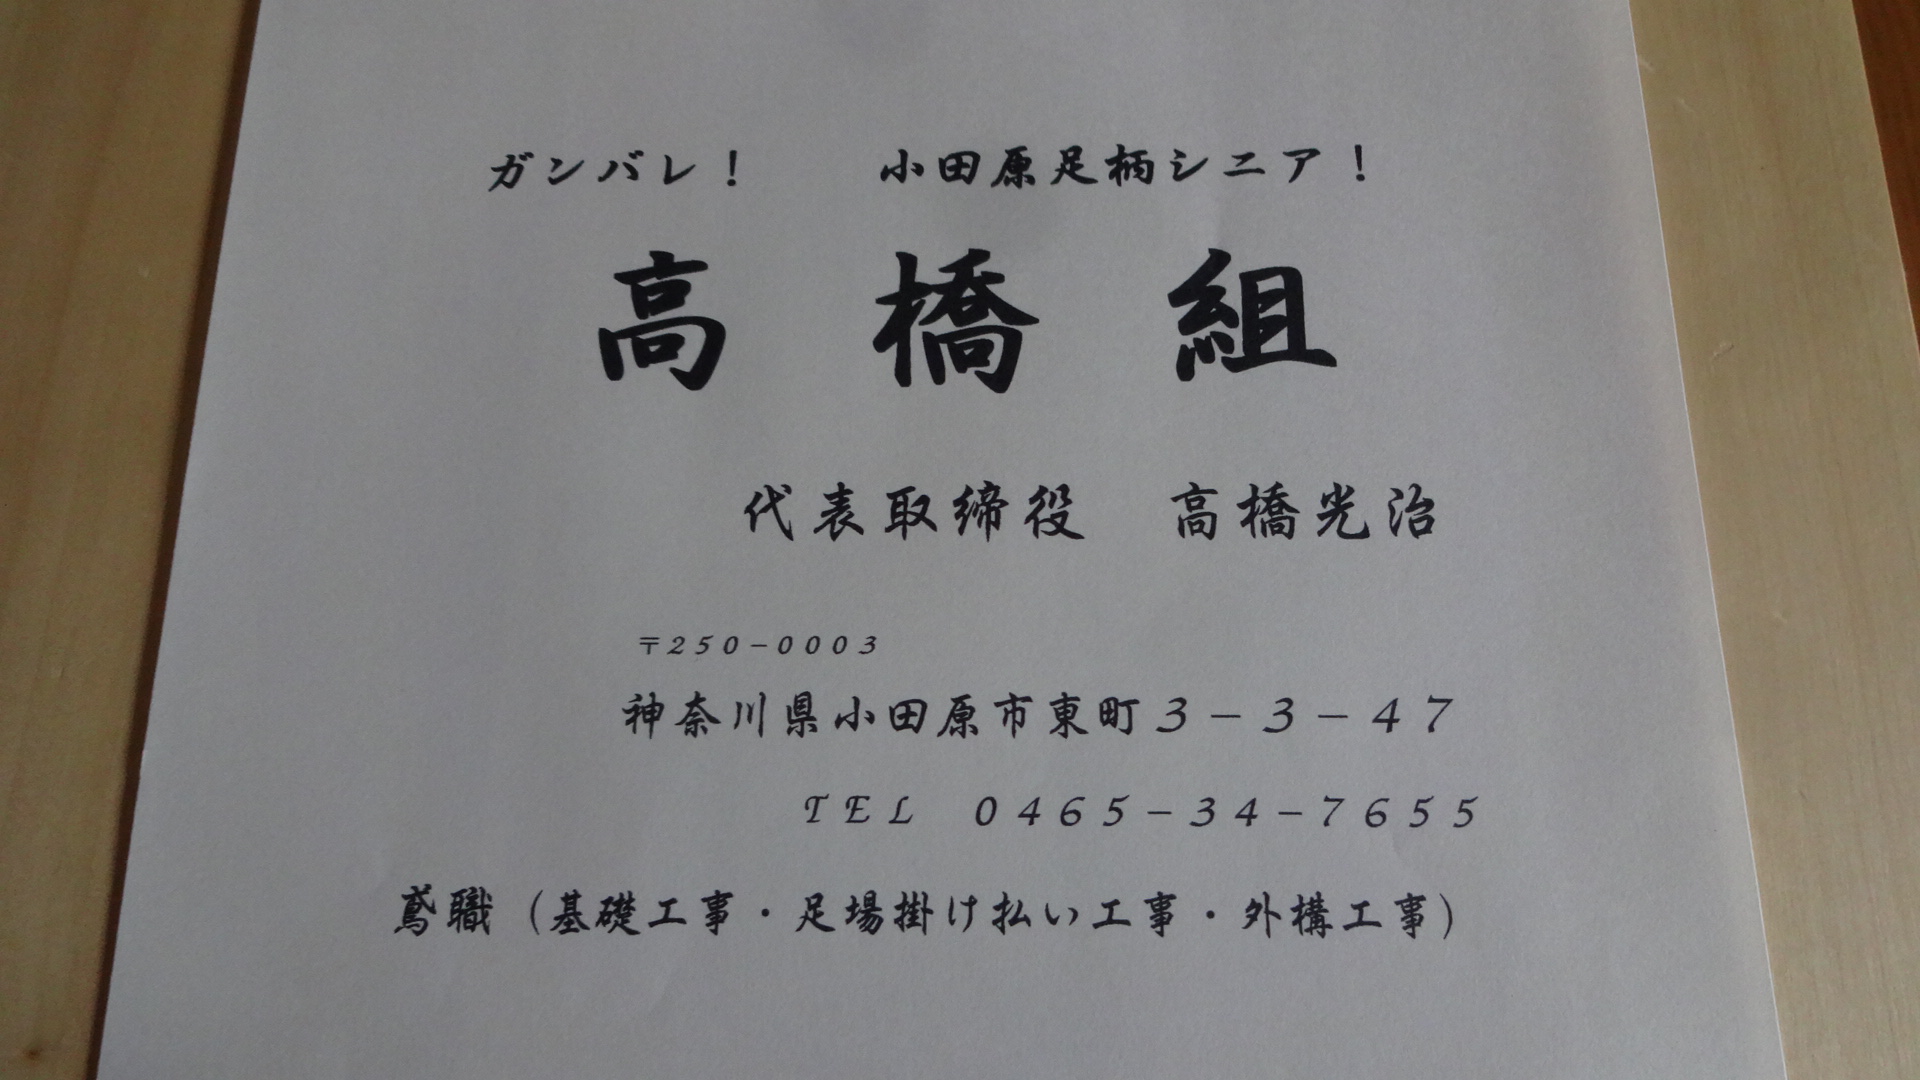 ガンバレ！　　小田原足柄シニア！
高橋組
代表取締役　高橋光治
〒250－0003
神奈川県小田原市東町3－3－47
TEL　0465－34－7655
鳶職（基礎工事・足場掛け払い工事・外構工事）